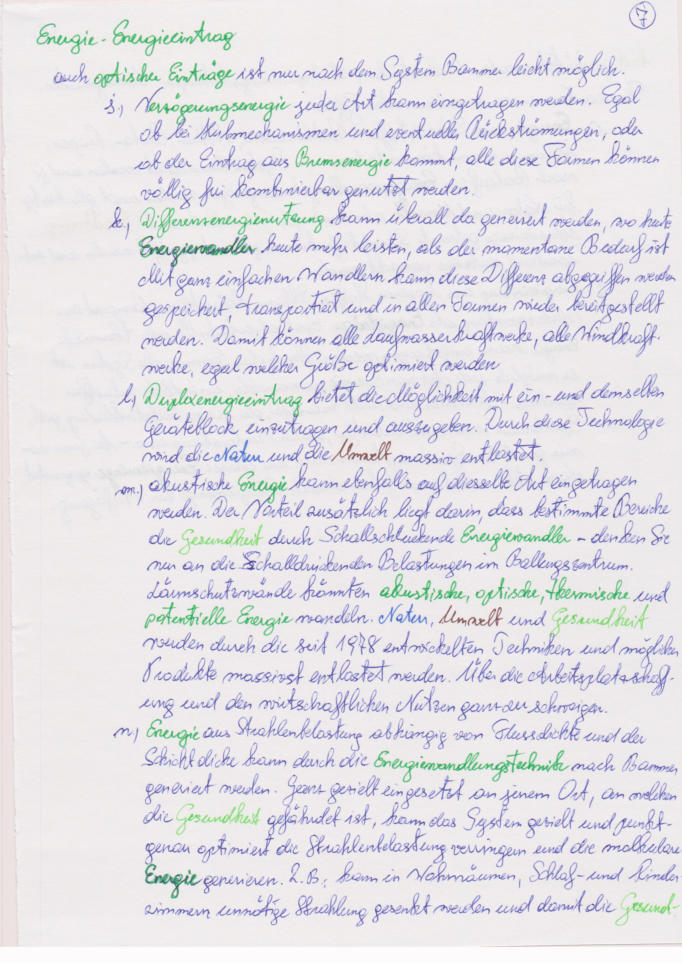 7
Energie - Energieeintrag
auch optischer Einträge ist nur nach dem System Bammer leicht möglich.
j.) Verzögerungsenergie jeder Art kann eingetragen werden. Egal
ob bei Hubmechanismen und eventueller Rückströmungen, oder
ob der Eintrag aus Bremsenergie kommt, alle diese Formen können
völlig frei kombinierbar genutzt werden.
k.) Differenzenergienutzung kann überall da generiert werden, wo heute
Energiewandler heute mehr leisten, als der momentane Bedarf ist
Mit ganz einfachen Wandlern kann diese Differenz abgegriffen werden
gespeichert, transportiert und in allen Formen wieder bereitgestellt
werden. Damit können alle Laufwasserkraftwerke, alle Windkraft-
werke, egal welcher Größe optimiert werden
l.) Duplexenergieeintrag bietet die Möglichkeit mit ein- und demselben
Geräteblock einzutragen und auszugeben. Durch diese Technologie
wird die Natur und die Umwelt massiv entlastet.
m.) akustische Energie kann ebenfalls auf dieselbe Art eingetragen
werden. Der Vorteil zusätzlich liegt darin, dass bestimmte Bereiche
die Gesundheit durch Schallschluckende Energiewandler - denken Sie
nur an die Schalldrückenden Belastungen im Ballungszentrum.
Lärmschutzwände könnten akustische, optische, thermische und
potentielle Energie wandeln. Natur, Umwelt und Gesundheit
werden durch die seit 1978 entwickelten Techniken und möglichen
Produkte massivst entlastet werden. Über die Arbeitsplatzschaff-
ung und den wirtschaftlichen Nutzen ganz zu schweigen.
n.) Energie aus Strahlenbelastung abhängig von Flussdichte und der
Schichtdicke kann durch die Energiewandlungstechnik nach Bammer
generiert werden. Ganz gezielt eingesetzt an jenem Ort, an welchen
die Gesundheit gefährdet ist, kann das System gezielt und punkt-
genau optimiert die Strahlenbelastung verringern und die molkulare
Energie generieren. Z.B.: kann in Wohnräumen, Schlaf- und Kinder-
zimmern unnötige Strahlung gesenkt werden und damit die Gesund-